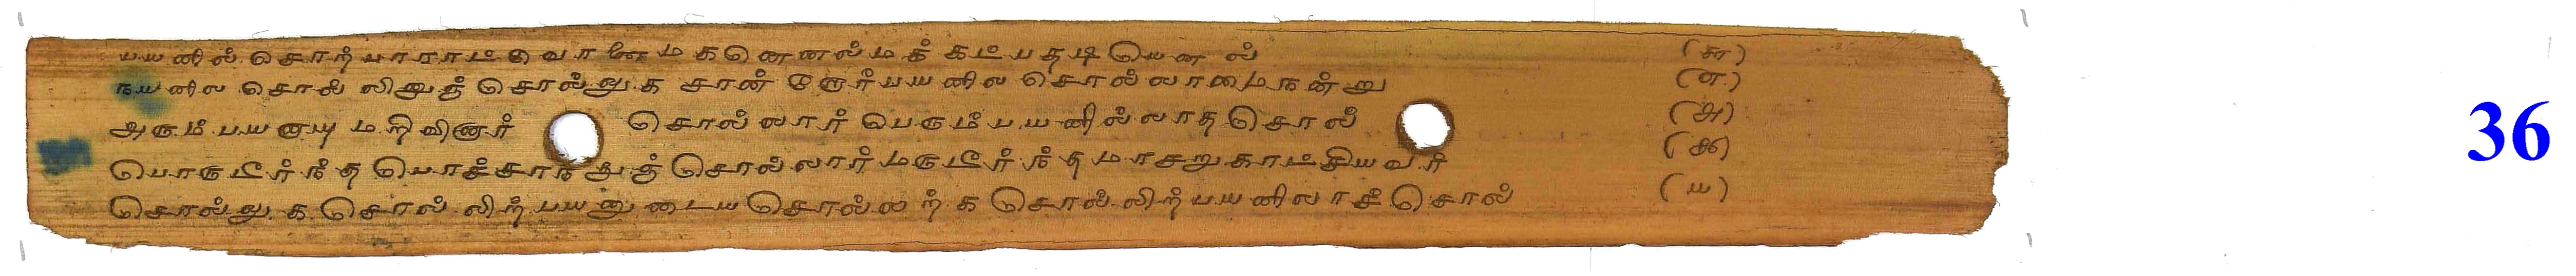 பயனில் சொற் பாராட்டுவானை மகனெனல் மக்கட் பதடியெனல் (சு)
நயனில சொல்லினுஞ் சொல்லுக சான்றோர் பயனில சொல்லாமை நன்று (எ)
அரும் பயனாயு மறிவினார் சொல்லார் பெரும் பயனில்லாத சொல் (அ)
பொருடீர்ந்த பொச்சாந்துஞ் சொல்லார் மருடீர்ந்த மாசறு காட்சியவர் (கூ)
சொல்லுக சொல்லிற் பயனுடைய சொல்லற்க சொல்லிற் பயனிலாச் சொல் (ய)
36